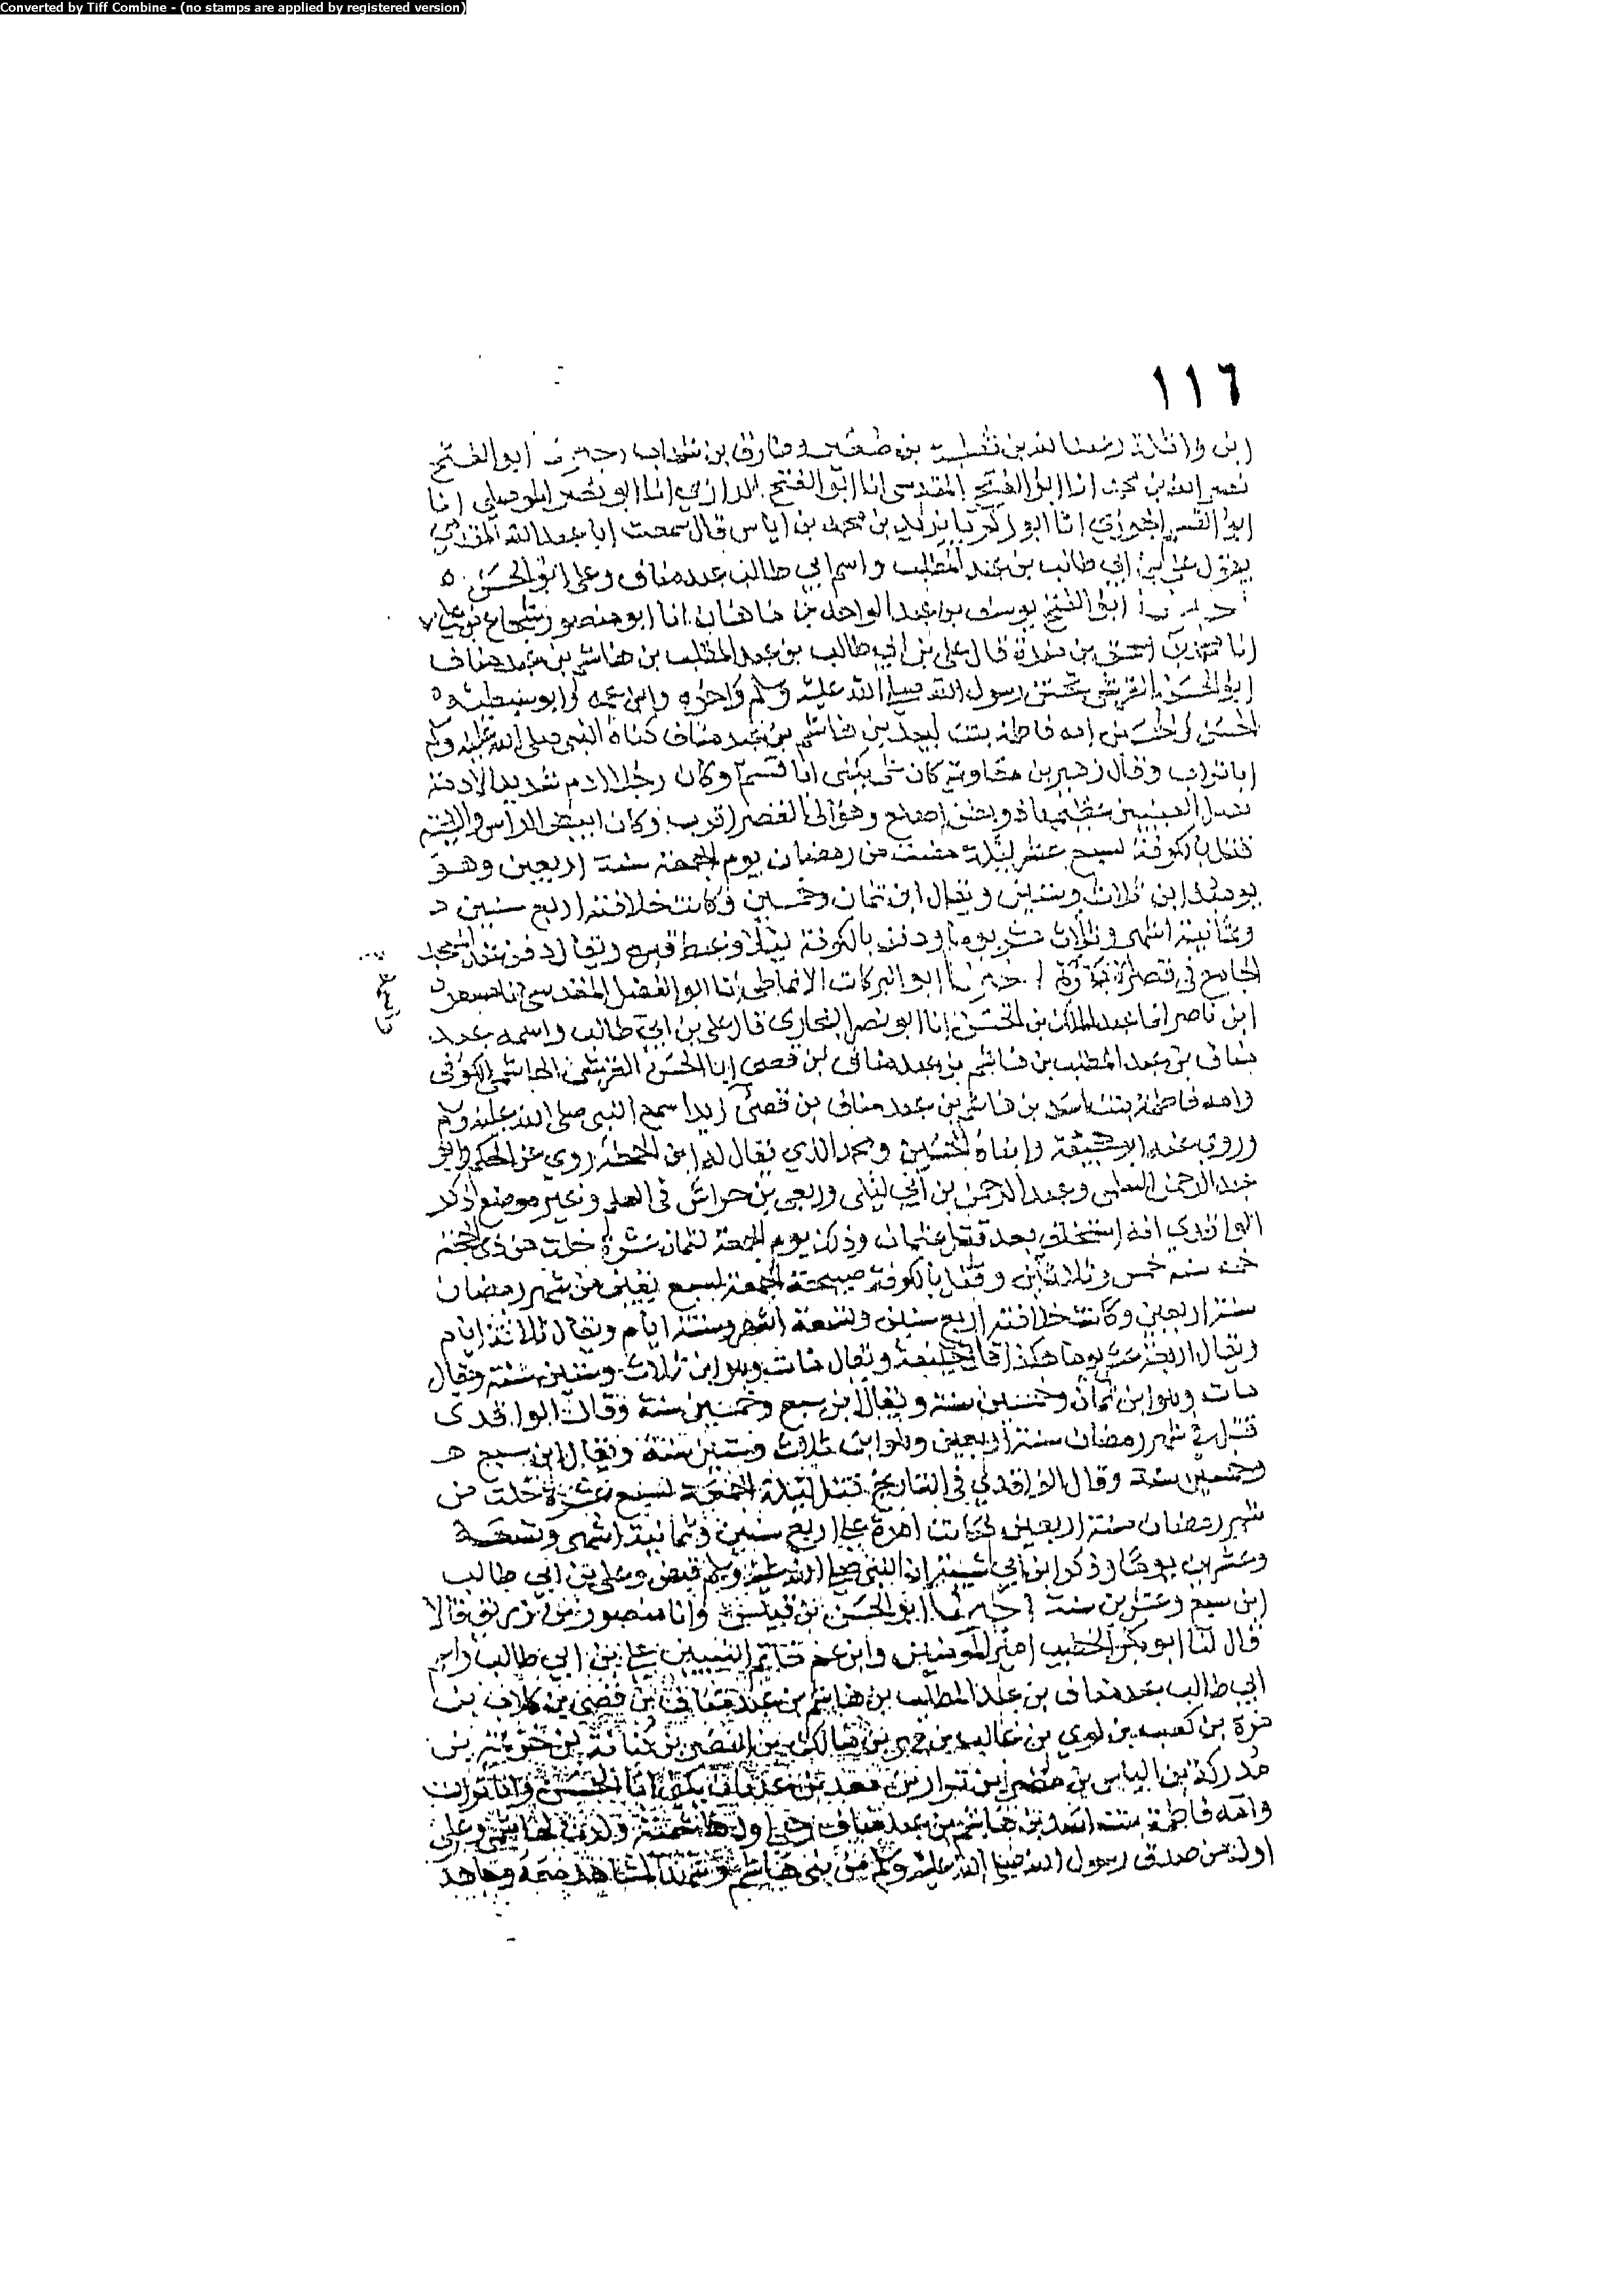 Converted by Tiff Combine - (no stamps are applied by registered version)
١١٦
ابن واثلة وعبد الله بن ثعلبة بن صعير وطارق بن شهاب ابو الفتح
نصر الله بن محمد انا ابو الفتح المقدسي انا ابو الفتح الرازي انا ابو نصر الموصلي انا
ابو القسم انا ابو زكريا يزيد بن محمد بن اياس قال سمعت ابا عبد الله المقدمي
يقول علي بن ابي طالب بن عبد المطلب واسم ابي طالب عبد مناف وعلي ابو الحسن ٥
ابو الفتح يوسف بن عبد الواحد بن ماهان انا ابو منصور شجاع بن علي
انا محمد بن اسحق بن مندة قال علي بن ابي طالب بن عبد المطلب بن هاشم بن عبد مناف
ابو الحسن القرشي ختن رسول الله صلى الله عليه وسلم واخوه وابن عمه وابو سبطيه
الحسن والحسين امه فاطمة بنت بن هاشم بن عبد مناف كناه النبي صلى الله عليه وسلم
ابا تراب وقال زهير بن معاوية كان علي يكنى ابا قسم وكان رجلا ادم شديد الادمة
العينين عظيمهما ذو بطن اصلع وهو الى القصر اقرب وكان ابيض الراس واللحية
قتل بالكوفة لسبع عشر ليلة مضت من رمضان يوم الجمعة سنة اربعين وهو
يومئذ ابن ثلاث وستين ويقال ابن ثمان وخمسين وكانت خلافته اربع سنين
وثمانية اشهر وثلاث عشر يوما ودفن بالكوفة ليلا وغبط قبره ويقال دفن عند المسجد
الجامع في قصر الامارة ابو البركات الانماطي انا ابو الفضل المقدسي انا مسعود
ابن ناصر انا عبد الملك بن الحسن انا ابو نصر البخاري قال علي بن ابي طالب واسمه عبد
مناف بن عبد المطلب بن هاشم بن عبد مناف بن قصي ابا الحسن القرشي الهاشمي الكوفي
وامه فاطمة بنت اسد بن هاشم بن عبد مناف بن قصي سمع النبي صلى الله عليه وسلم
وروى عنه ابو جحيفة وابناه الحسين ومحمد الذي يقال له ابن روى عن الحكم وابو
عبد الرحمن السلمي وعبد الرحمن بن ابي ليلى وربعي بن حراش في العلم وغير موضع ذكر
الواقدي انه استخلف بعد قتل عثمان وذلك يوم الجمعة لثمان عشرة خلت من ذي الحجة
سنة خمس وثلاثين وقتل بالكوفة صبيحة الجمعة لسبع بقين من شهر رمضان
سنة اربعين وكانت خلافته اربع سنين وتسعة اشهر وستة ايام ويقال ثلاثة ايام
ويقال اربعة عشر يوما هكذا قال خليفة ويقال مات وهو ابن ثلاث وستين سنة ويقال
مات وهو ابن ثمان وخمسين سنة ويقال ابن سبع وخمسين سنة وقال الواقدي
قتل في شهر رمضان سنة اربعين وهو ابن ثلاث وستين سنة ويقال ابن سبع
وخمسين سنة وقال الواقدي في التاريخ قتل ليلة الجمعة لسبع عشرة خلت من
شهر رمضان سنة اربعين وكانت امرة علي اربع سنين وثمانية اشهر وتسعة
وعشرين يوما وذكر ابن ابي شيبة ان النبي صلى الله عليه وسلم قبض وعلي بن ابي طالب
ابن سبع وعشرين سنة ابو الحسن بن قبيس وانا منصور بن زريق قالا
قال لنا ابو بكر الخطيب امير المومنين وابن عم خاتم النبيين علي بن ابي طالب واسم
ابي طالب عبد مناف بن عبد المطلب بن هاشم بن عبد مناف بن قصي بن كلاب بن
مرة بن كعب بن لوي بن غالب بن فهر بن مالك بن النضر بن كنانة بن خزيمة بن
مدركة بن الياس بن مضر بن نزار بن معد بن عدنان يكنى ابا الحسن وابا تراب
وامه فاطمة بنت اسد بن هاشم بن عبد مناف وهي اول هاشمية ولدت لهاشمي وعلي
اول من صدق رسول الله صلى الله عليه وسلم من بني هاشم وشهد المشاهد معه وجاهد